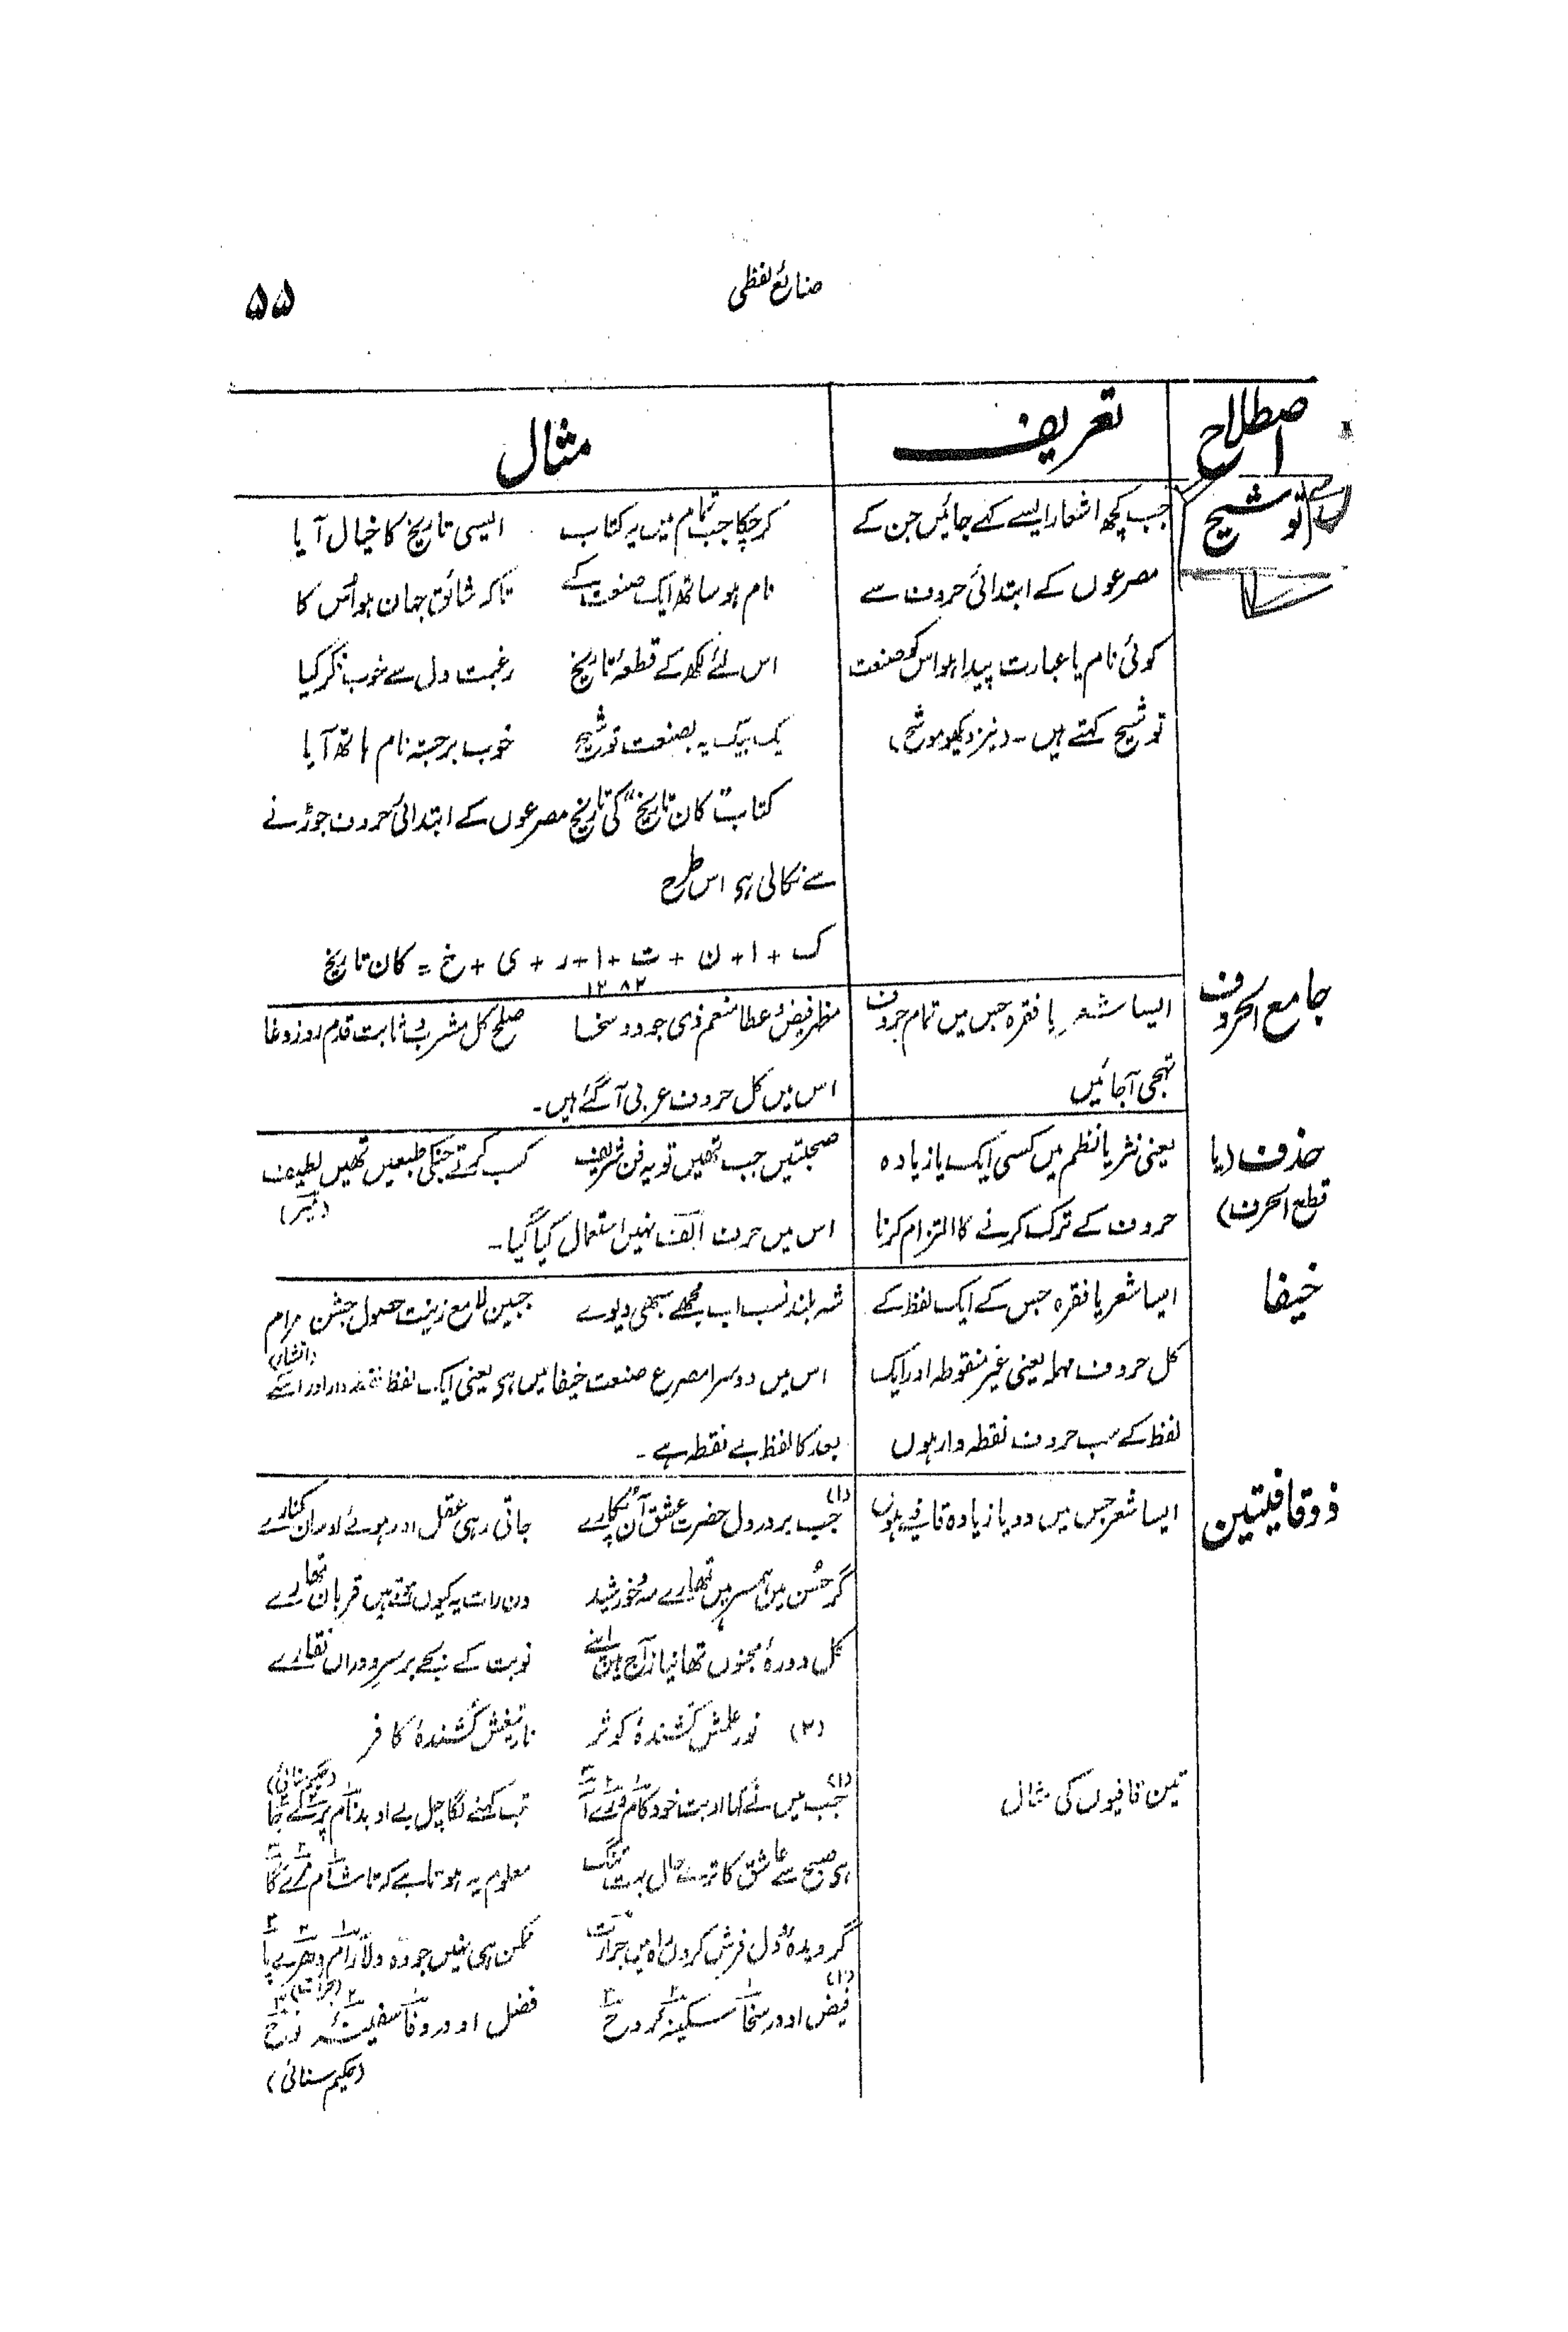 ۵۵
صنائع لفظی
اصطلاح
تعریف
مثال
توشیح
جب کچھ اشعار ایسے کہے جائیں جن کے
مصرعوں کے ابتدائی حروف سے
کوئی نام یا عبارت پیدا ہو اس کو صنعت
توشیح کہتے ہیں۔ (نیز دیکھو موشح)
کر چکا جب تمام میں یہ کتاب ایسی تاریخ کا خیال آیا
نام ہو ساتھ ایک صنعت کے تا کہ شائق جہان ہو اُس کا
اس لئے لکھ کے قطعۂ تاریخ رغبت دل سے خوب فکر کیا
یک بیک یہ بصنعت توشیح خوب برجستہ نام ہاتھ آیا
کتاب "کان تاریخ" کی تاریخ مصرعوں کے ابتدائی حروف جوڑنے
سے نکالی ہی اس طرح
ک + ا + ن + ت + ا + ر + ی + خ = کان تاریخ
۱۲۸۲
جامع الحروف
ایسا شعر یا فقرہ جس میں تمام حروف
تہجی آجائیں
مظہر فیض و عطا منعم ذی جود و سخا صلح کل مشرب و ثابت قدم روز وغا
اس میں کل حروف عربی آگئے ہیں۔
حذف (یا
قطع الحرف)
یعنی نثر یا نظم میں کسی ایک یا زیادہ
حروف کے ترک کرنے کا التزام کرنا
صحبتیں جب تھیں تو یہ فن شریف کسب کرتے جنکی طبعیں تھیں لطیف
(میر)
اس میں حرف الف نہیں استعمال کیا گیا۔
خیفا
ایسا شعر یا فقرہ جس کے ایک لفظ کے
کل حروف مہملہ یعنی غیر منقوطہ اور ایک
لفظ کے سب حروف نقطہ دار ہوں
شہ بلند نسب اب مجھے سبھی دیوے جبین لامع زینت حصول جشن مرام
(انشا)
اس میں دوسرا مصرع صنعت خیفا میں ہی یعنی ایک لفظ نقطہ دار اور اسکے
بعد کا لفظ بے نقطہ ہے۔
ذوقافیتین
ایسا شعر جس میں دو یا زیادہ قافیے ہوں
(۱) جب بر در دل حضرت عشق آن پکارے جاتی رہی عقل اور ہوئے اوسان کنارے
گر حسن میں ہمسر ہیں تمھارے مہ و خورشید دن رات یہ کیوں ہوتے ہیں قربان تمھارے
کل دورۂ مجنوں تھا نیاز آج ہیں اپنے نوبت کے بجے بر سر دوراں نقارے
(۲) نور علمش کشندۂ کوثر نار تیغش کُشندۂ کافر
(حکیم سنائی)
تین قافیوں کی مثال
(۱) جب میں نے کہا او بت خود کام ورے آ تب کہنے لگا چل بے او بدنام پرے جا
ہی صبح سے عاشق کا ترے حال بہت تنگ معلوم یہ ہوتا ہے کہ تا شام مرے گا
گر دیدہ و دل فرش کروں راہ میں جرات ممکن ہی نہیں جو وہ دلآرام دھرے پا
(جرات)
(۲) فیض او در سخا سکینۂ روح فضل او در وفا سفینۂ نوح
(حکیم سنائی)